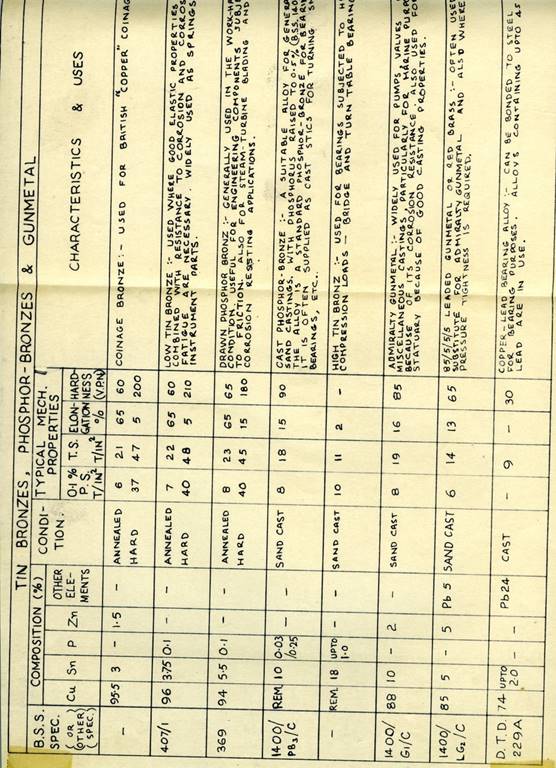 TIN BRONZES, PHOSPHOR-BRONZES & GUNMETAL
B.S.S. SPEC. (OR OTHER SPEC.) COMPOSITION (%) CONDI-TION. TYPICAL MECH. PROPERTIES CHARACTERISTICS & USES
Cu Sn P Zn OTHER ELE-MENTS 0·1 % P.S. T/IN² T.S. T/IN² ELON-GATION % HARD-NESS (V.P.N)
– 95·5 3 – 1·5 – ANNEALED 6 21 65 60 COINAGE BRONZE:- USED FOR BRITISH "COPPER" COINAG
HARD 37 47 5 200
407/1 96 3·75 0·1 – – ANNEALED 7 22 65 60 LOW TIN BRONZE :- USED WHERE GOOD ELASTIC PROPERTIES
HARD 40 48 5 210 COMBINED WITH RESISTANCE TO CORROSION AND CORROS
FATIGUE ARE NECESSARY. WIDELY USED AS SPRINGS
INSTRUMENT PARTS.
369 94 5·5 0·1 – – ANNEALED 8 23 65 65 DRAWN PHOSPHOR BRONZ :- GENERALLY USED IN THE WORK-HA
HARD 40 45 15 180 CONDITION. USEFUL FOR ENGINEERING COMPONENTS SUBJ
TO FRICTION. ALSO FOR STEAM-TURBINE BLADING AND
CORROSION RESISTING APPLICATIONS.
1400/PB3/C REM. 10 0·03/0·25 – – SAND CAST 8 18 15 90 CAST PHOSPHOR-BRONZE :- A SUITABLE ALLOY FOR GENERA
SAND CASTINGS. WITH PHOSPHORUS RAISED TO 0·5% (BSS.
THE ALLOY IS A STANDARD PHOSPHOR-BRONZE FOR BEARIN
IT IS OFTEN SUPPLIED AS CAST STICS FOR TURNING SM
BEARINGS, ETC..
– REM. 18 UPTO 1·0 – – SAND CAST 10 11 2 – HIGH TIN BRONZ :- USED FOR BEARINGS SUBJECTED TO H
COMPRESSION LOADS – BRIDGE AND TURN TABLE BEARING
1400/G1/C 88 10 – 2 – SAND CAST 8 19 16 85 ADMIRALTY GUNMETAL :- WIDELY USED FOR PUMPS, VALVES
MISCELLANEOUS CASTINGS, PARTICULARLY FOR MARINE PURP
BECAUSE OF ITS CORROSION RESISTANCE. ALSO USED FOR
STATUARY BECAUSE OF GOOD CASTING PROPERTIES.
1400/LG2/C 85 5 – 5 Pb 5 SAND CAST 6 14 13 65 85/5/5/5 LEADED GUNMETAL OR RED BRASS :- OFTEN USED
SUBSTITUTE FOR ADMIRALTY GUNMETAL AND ALSO WHERE
PRESSURE TIGHTNESS IS REQUIRED.
D.T.D. 229A 74 UPTO 2·0 – – Pb24 CAST – 9 – 30 COPPER-LEAD BEARING ALLOY :- CAN BE BONDED TO STEEL
FOR BEARING PURPOSES. ALLOYS CONTAINING UPTO 45
LEAD ARE IN USE.